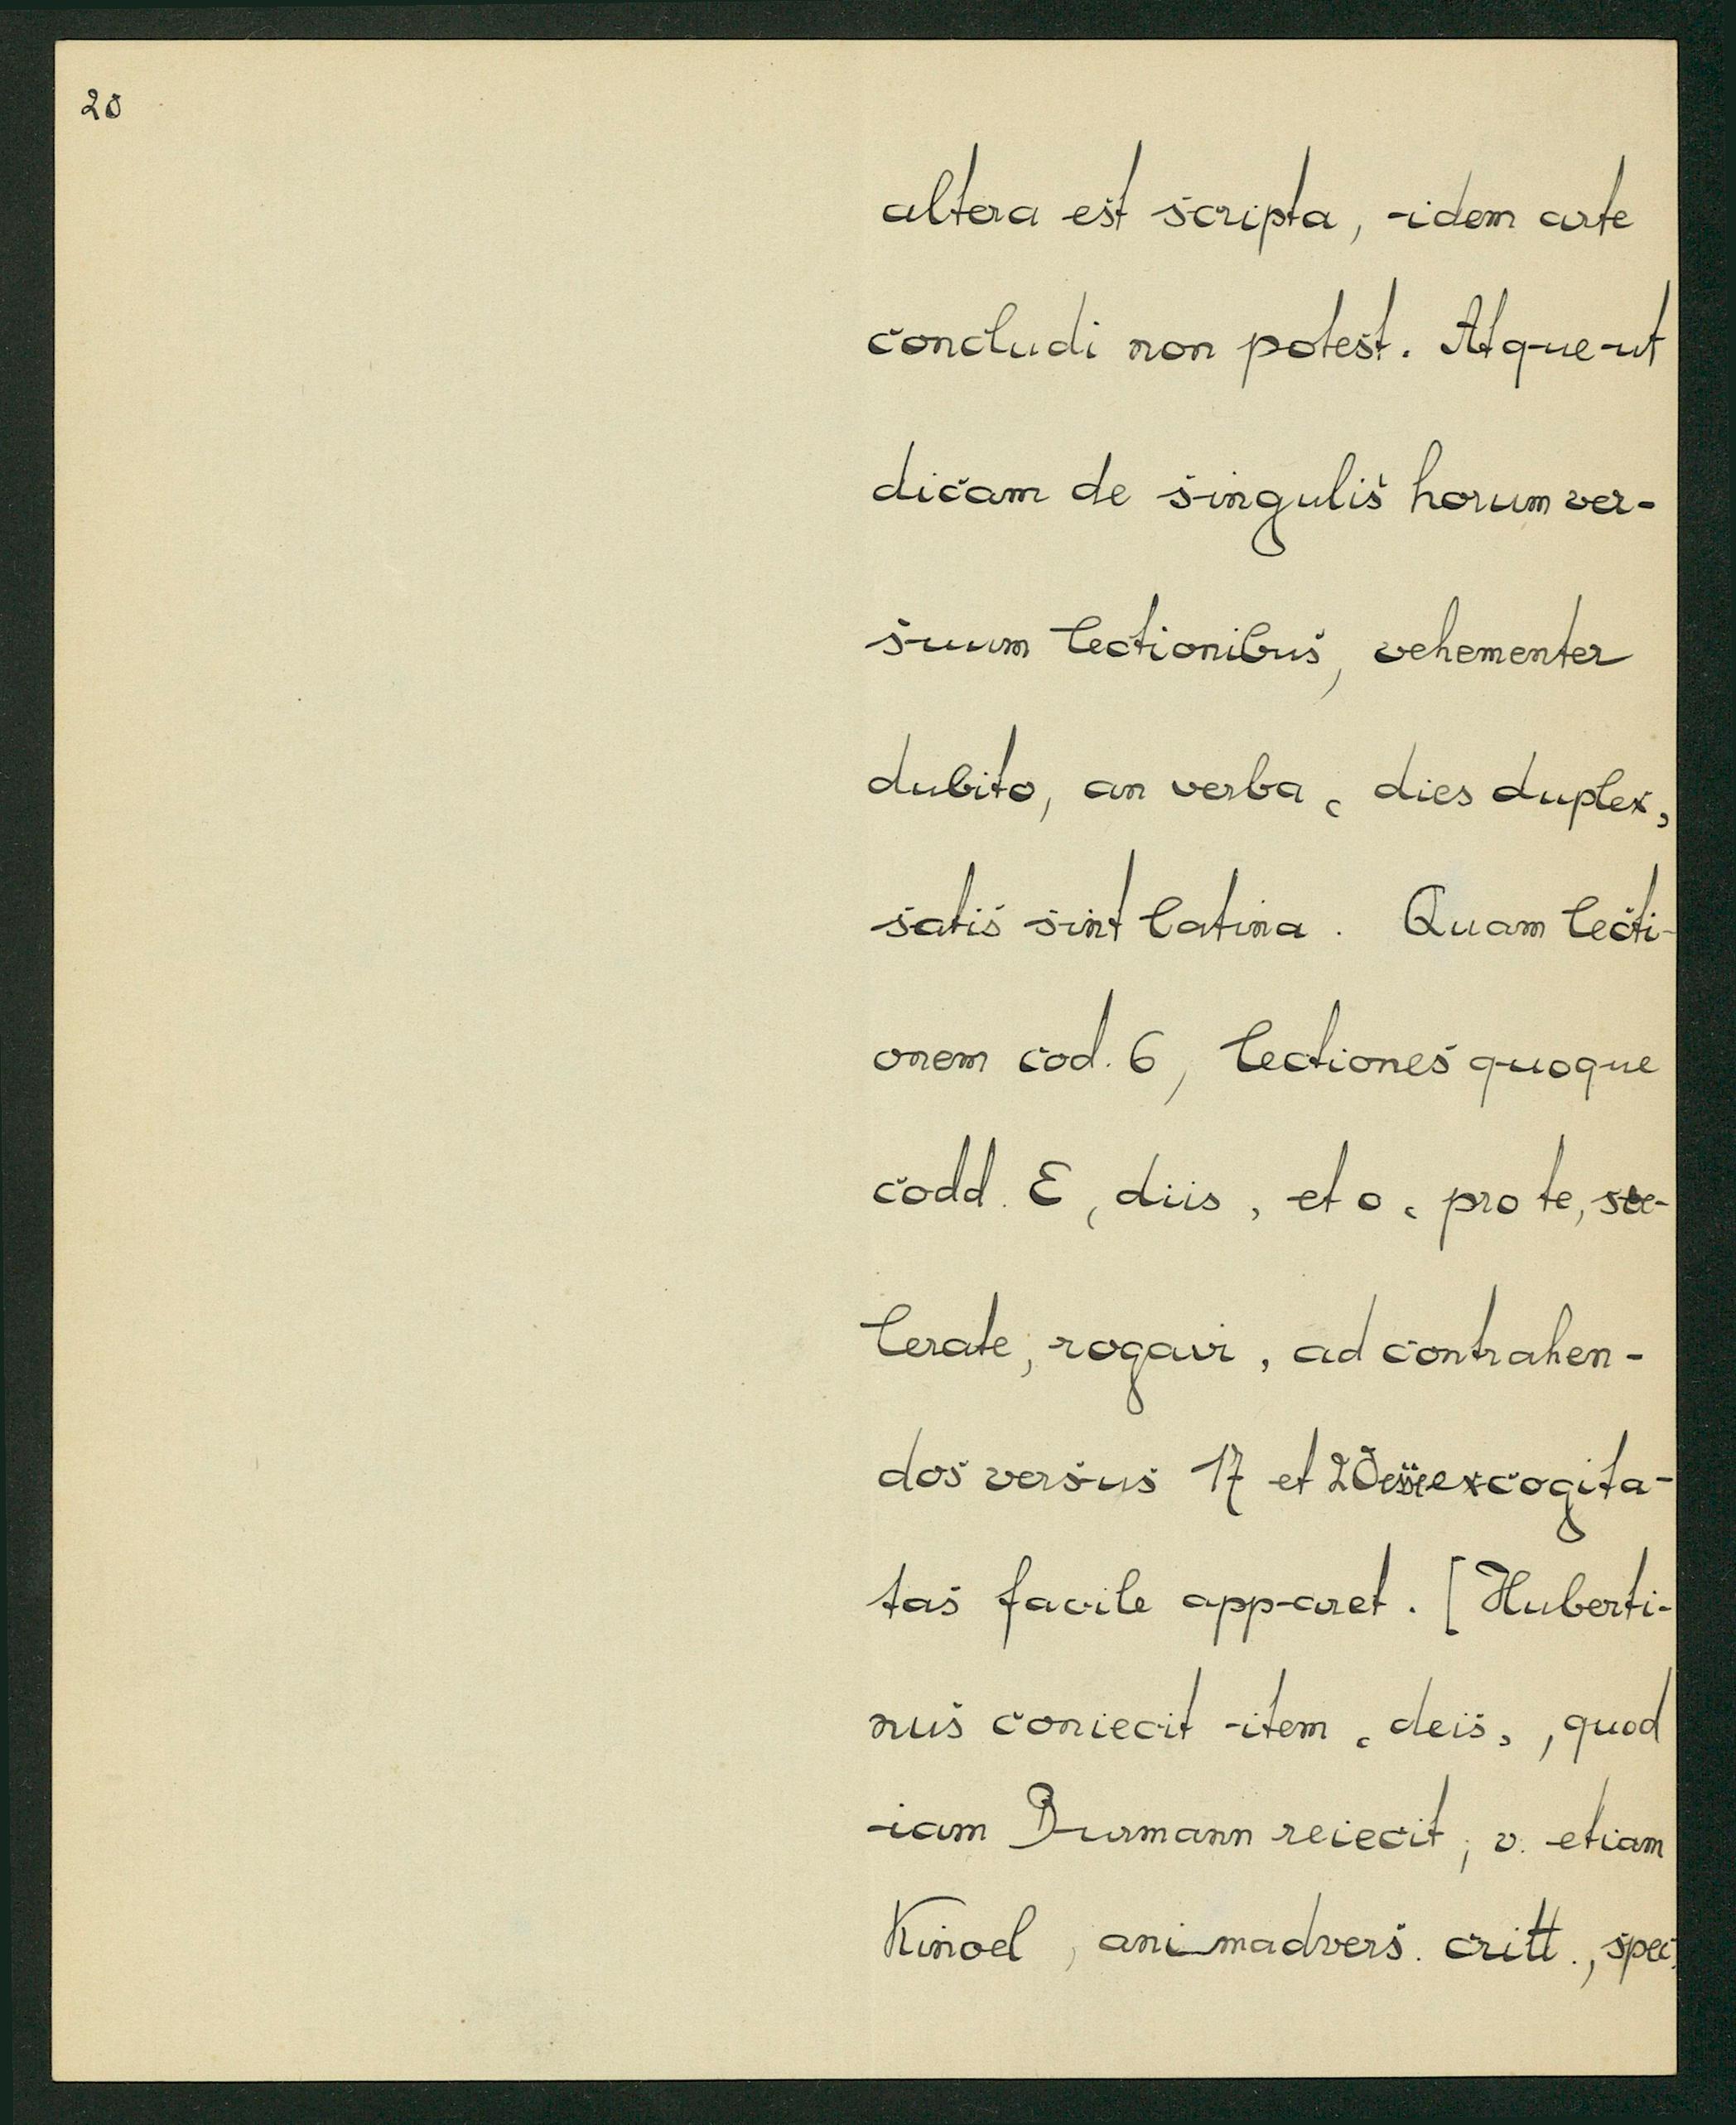 20
altera est scripta, idem arte
concludi non potest. Atque ut
dicam de singulis horum ver-
suum lectionibus, vehementer
dubito, an verba ‹ dies duplex ›
satis sint latina. Quam lecti-
onem cod. 6, lectiones quoque
codd. E ‹ diis › et o ‹ pro te, sce-
lerate, rogavi › ad contrahen-
dos versus 17 et 20 esse excogita-
tas facile apparet. [Huberti-
nus coniecit item ‹ deis ›, quod
iam Burmann reiecit; v. etiam
Kinoel, animadvers. critt., spec.